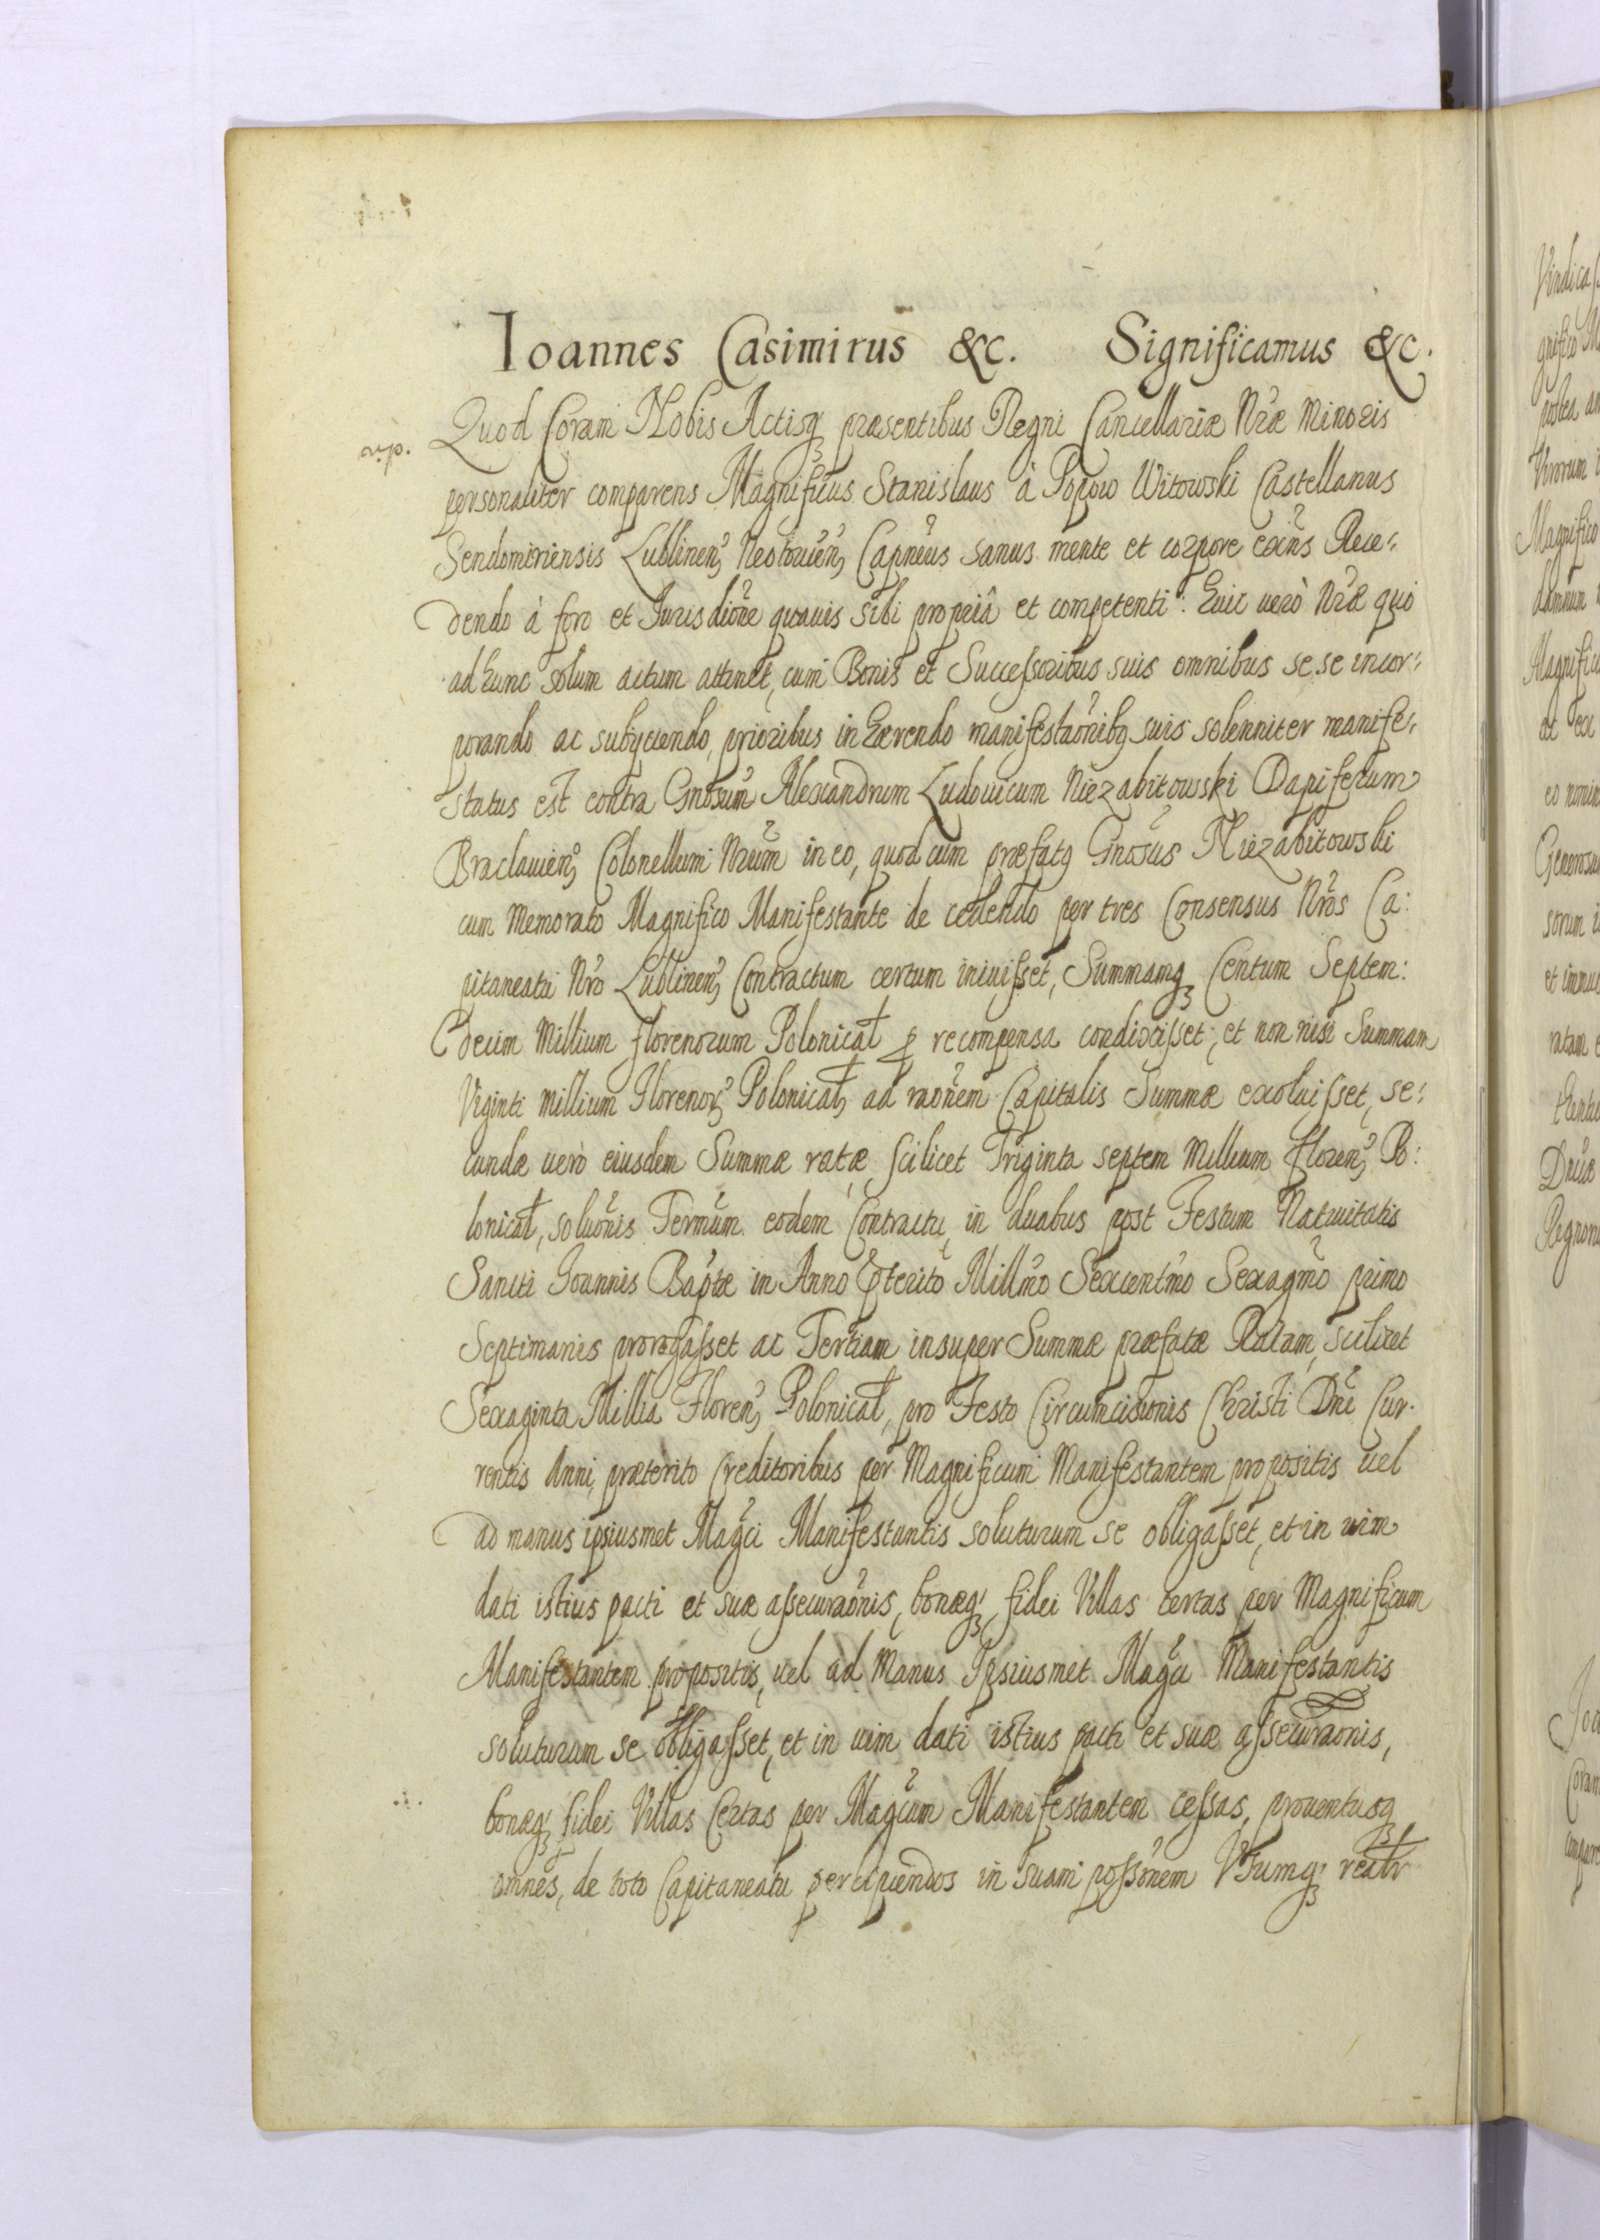 Ioannes Casimirus &c. Significamus &c.
Quod Coram Nobis Actisq₃ præsentibus Regni Cancellariæ Nr̃æ Minoris
personaliter comparens Magnificus Stanislaus à Popow Witowski Castellanus
Sendomiriensis Lublinen̄ Capnẽus sanus mente et corpore ex̃ns Rece-
dendo à foro et Jurisdiõne quavis sibi propriâ et competenti: huic verò Nr̃æ quò
ad hunc solum actum attinet, cum Bonis et Successoribus suis omnibus se se incor-
porando ac subyciendo, prioribus inhærendo manifestaõnibq suis solenniter manife-
status est contra Gnõsum Alexandrum Ludovicum Niezabitowski Dapiferum
Braclavien̄ Colonellum Nr̃um in eo, quod cum præfatq Gnõsus Niezabitowski
cum Memorato Magnifico Manifestante de cedendo per tres Consensus Nr̃os Ca:
pitaneatu Nr̃o Lublinen̄ Contractum certum inivisset, Summamq₃ Centum Septem:
decim Millium florenorum Polonical ꝓ recompensa condixisset; et non nisi Summam
Viginti Millium Florenor̃ Polonical ad raõnem Capitalis Summæ exoluisset, se-
cundæ verò eiusdem Summæ ratæ scilicet Triginta septem Millium floren̄ Po:
lonical, soluõnis Termĩum eodem Contractu, in duabus post Festum Nativitatis
Sancti Joannis Bap̃tæ in Anno P̃terito Millm̃o Sexcentm̃o Sexagm̃o primo
Septimanis prorogasset ac Tertiam insuper Summæ præfatæ Ratam, scilicet
Sexaginta Millia Floren̄ Polonical, pro Festo Circumcisionis Christi Dñi Cur-
rentis Anni, præterito Creditoribus per Magnificum Manifestantem propositis vel
ad manus ipsiusmet Mag̃ci Manifestantis soluturum se obligasset, et in vim
dati istius pacti et suæ assecuraõnis, bonæq₃ fidei Villas certas per Magnificum
Manifestantem propositis, vel ad Manus Ipsiusmet Mag̃ci Manifestantis
soluturum se obligasset, et in vim dati istius pacti et suæ assecuraõnis,
bonæq₃ fidei Villas Certas per Mag̃cum Manifestantem cessas, proventusq₃
omnes, de toto Capitaneatu percipiendos in suam possõnem Vsumq₃